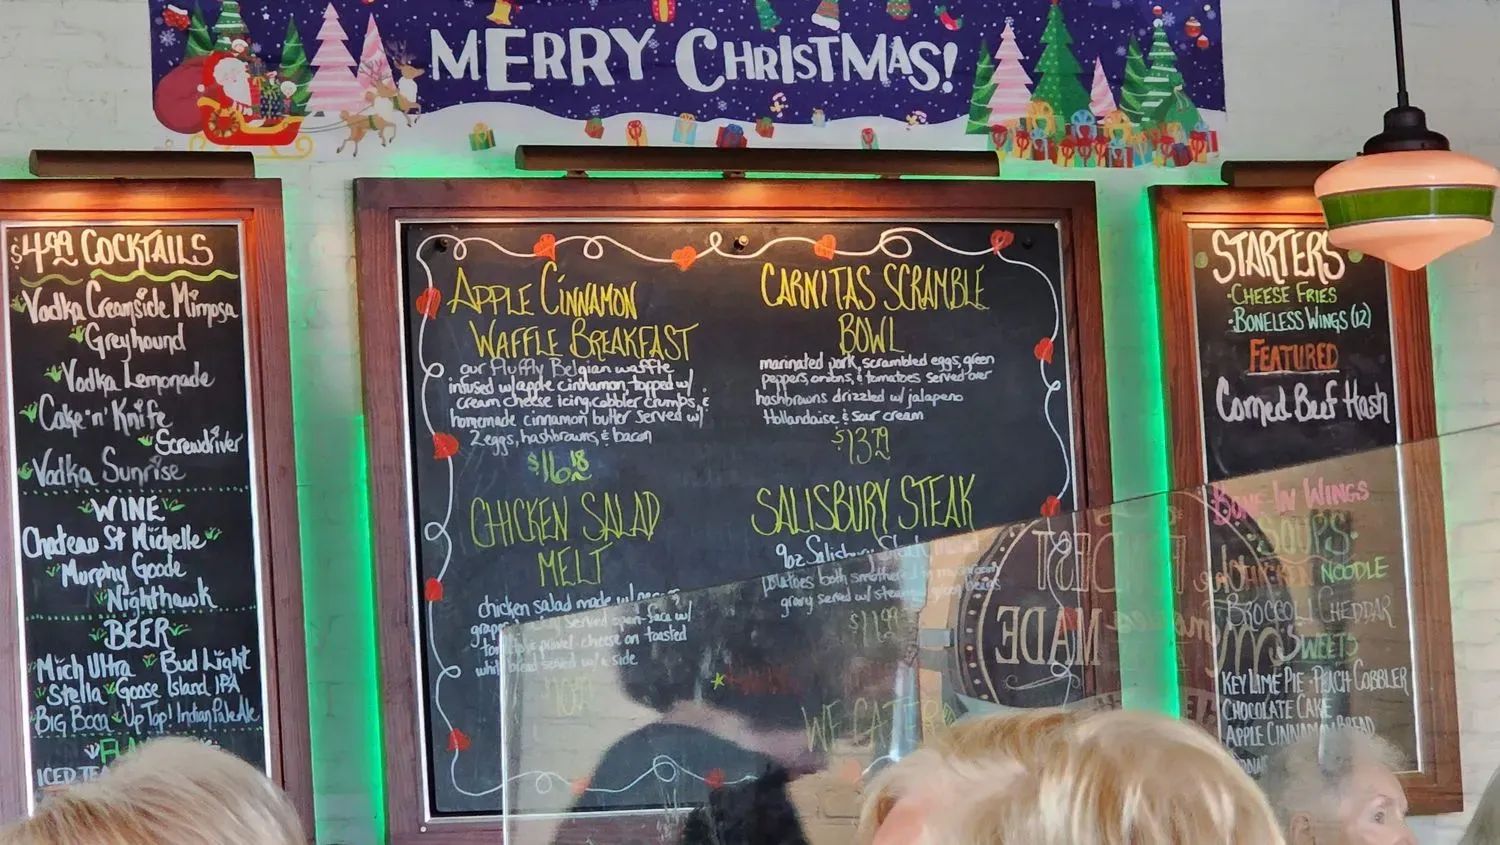 MERRY CHRISTMAS!
$4.99 COCKTAILS
Vodka Creamside Mimosa
Greyhound
Vodka Lemonade
Cake 'n' Knife
Screwdriver
Vodka Sunrise
WINE
Chateau St Michelle
Murphy Goode
Nighthawk
BEER
Mich Ultra Bud Light
Stella Goose Island IPA
Big Boca Up Top! Indian Pale Ale
ICED TEA
APPLE CINNAMON
WAFFLE BREAKFAST
our fluffy Belgian waffle
infused w/apple cinnamon, topped w/
cream cheese icing, cobbler crumbs, &
homemade cinnamon butter served w/
2 eggs, hashbrowns, & bacon
$16.18
CHICKEN SALAD
MELT
chicken salad made w/
served open-face w/
provel cheese on toasted
bread served w/ a side
CARNITAS SCRAMBLE
BOWL
marinated pork, scrambled eggs, green
peppers, onions, & tomatoes served over
hashbrowns drizzled w/ jalapeno
Hollandaise & sour cream
$13.79
SALISBURY STEAK
9oz Salisbury Steak
potatoes both smothered in mushroom
gravy served w/ steamed green beans
$11.99
WE CATER
MADE
STARTERS
·CHEESE FRIES
·BONELESS WINGS (12)
FEATURED
Corned Beef Hash
BONE-IN WINGS
·SOUPS·
CHICKEN NOODLE
BROCCOLI CHEDDAR
SWEETS
KEY LIME PIE · PEACH COBBLER
CHOCOLATE CAKE
APPLE CINNAMON BREAD